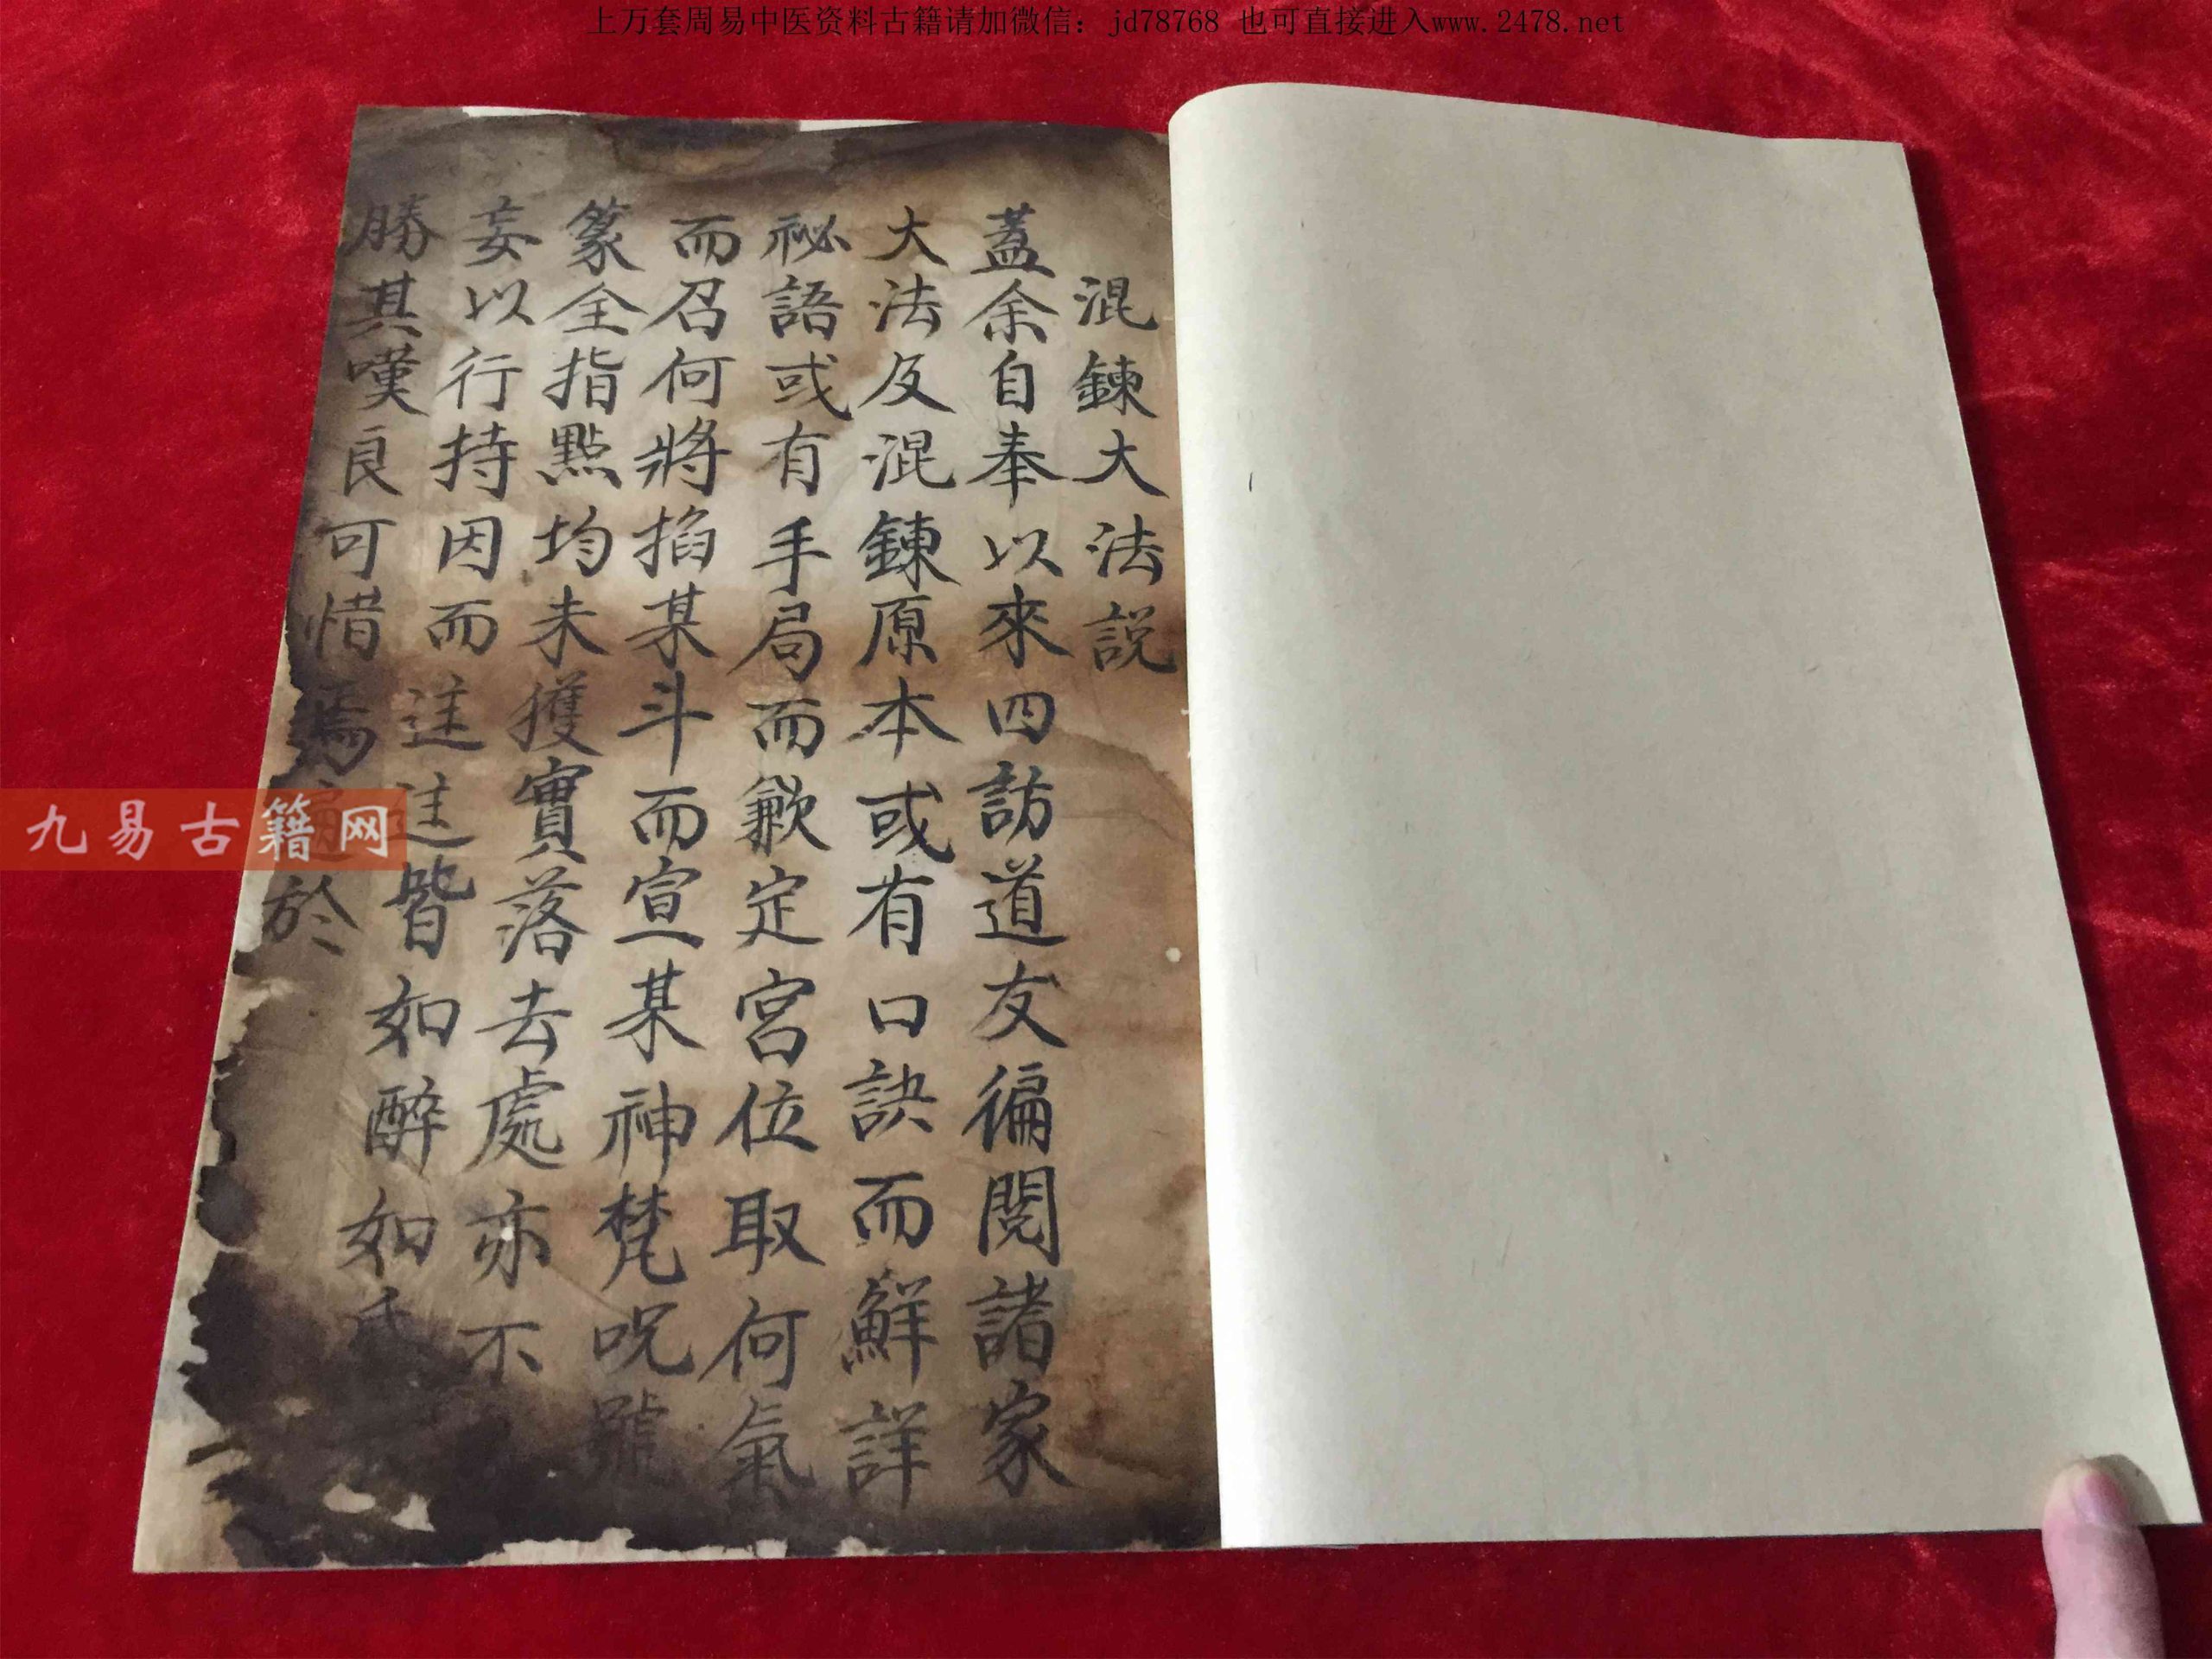 上万套周易中医资料古籍请加微信：jd78768 也可直接进入www.2478.net
混鍊大法説
蓋余自奉以來四訪道友徧閱諸家
大法及混鍊原本或有口訣而鮮詳
祕語或有手局而歉定宮位取何氣
而召何將掐某斗而宣某神梵呪號
篆全指點均未獲實落去處亦不
妄以行持因而迬迬皆如醉如
勝其嘆良可惜焉 於
九易古籍网